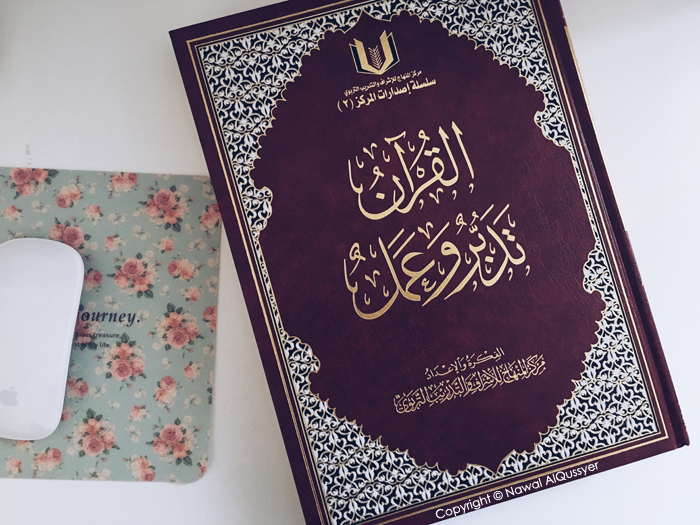 مركز المنهاج للإشراف والتدريب التربوي
سلسلة إصدارات المركز (٢)
القُرآنُ
تَدَبُّرٌ وَعَمَلٌ
الفِكْرَة وَالإِعْدَاد
مَركَز المِنهَاج لِلإِشرَاف وَالتَّدرِيب التَّربَوِيّ
Journey.
treasure.
life.
Copyright © Nawal AlQussyer